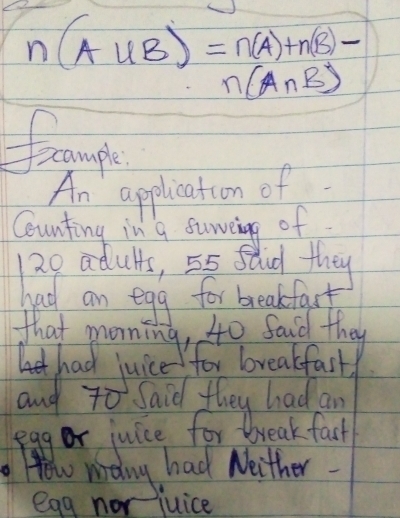 n(A ∪ B) = n(A)+n(B) –
n(A∩B)
Example:
An application of -
Counting in a surveing of -
120 adults, 55 Said they
had an egg for breakfast
that morning, 40 Said they
had had juice for breakfast,
and 70 Said they had an
egg or juice for breakfast
• How many had Neither -
egg nor juice